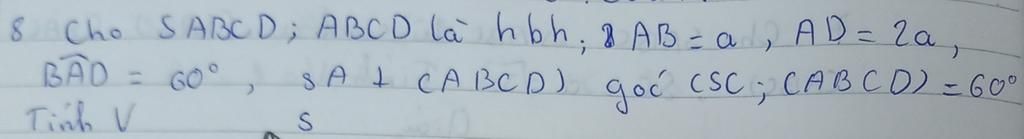 8 Cho SABCD; ABCD là hbh; AB = a, AD = 2a,
BAD = 60°, SA ⊥ (ABCD) góc (SC; (ABCD) = 60°
Tính V S